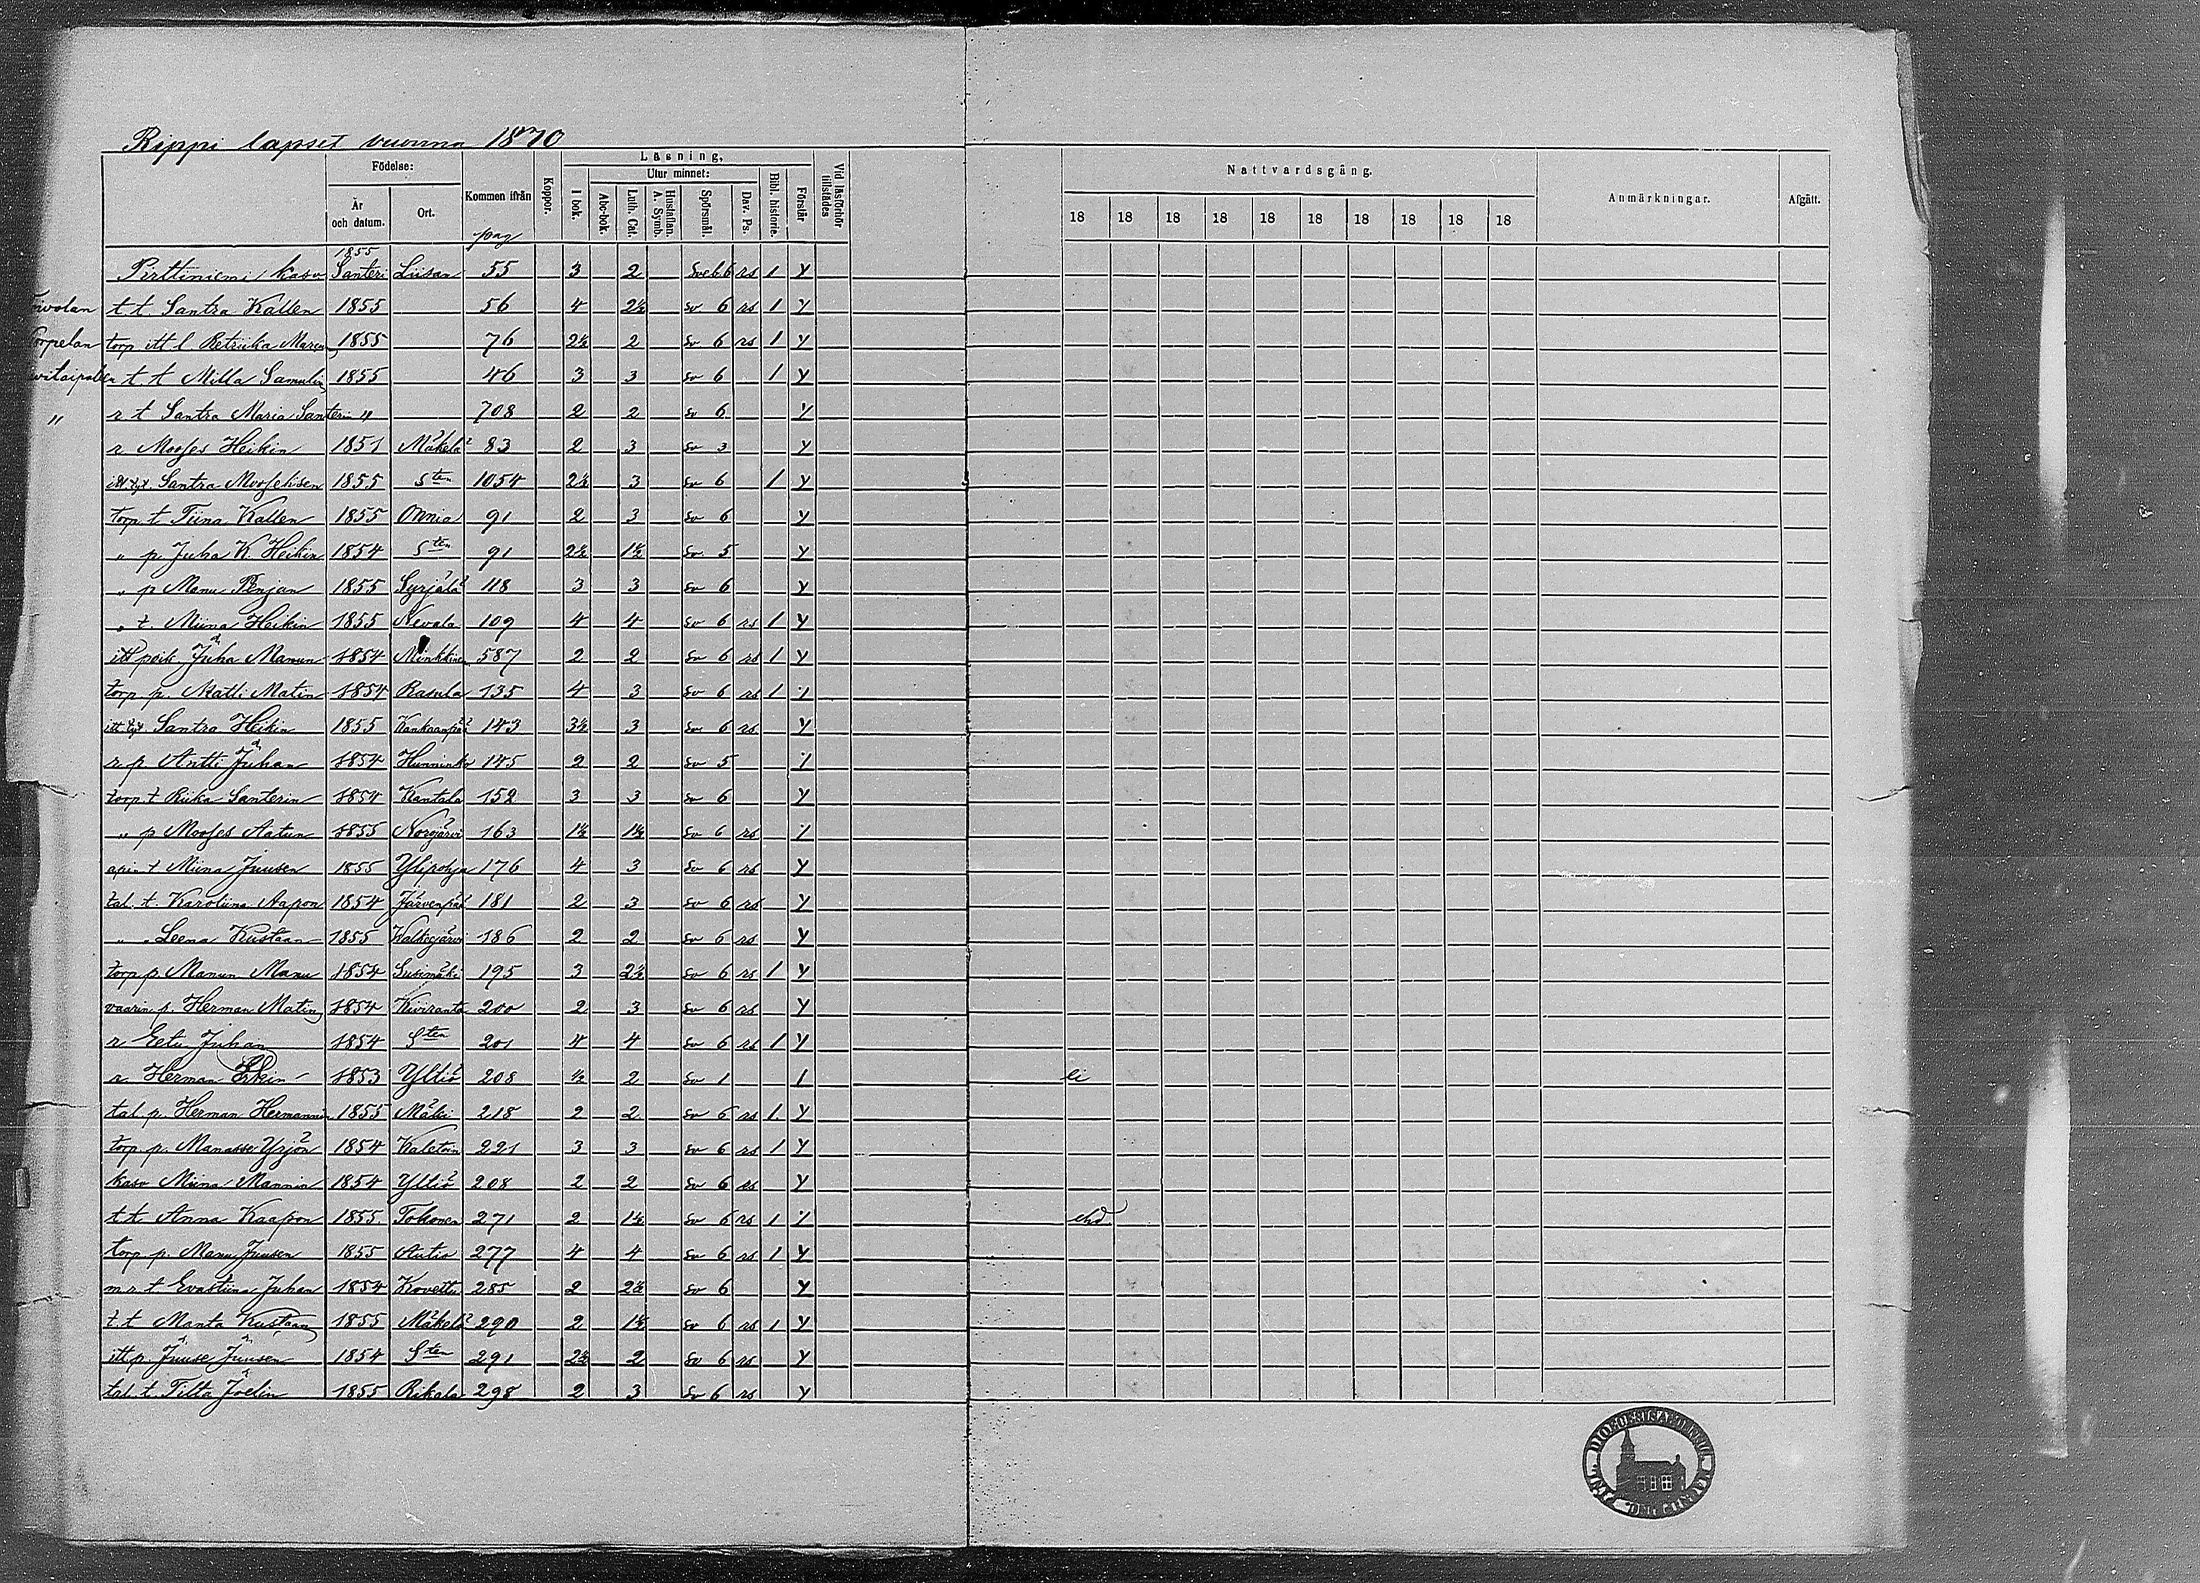 Rippi lapset vuonna 1870
Födelse: Kommen ifrån Koppor. Läsning, Utur minnet: Vid läsförhör tillstädes Nattvardsgång. Anmärkningar. Afgått.
År och datum. Ort. pag I bok. Abc-bok. Luth. Cat. Hustaflan. A. Symb. Spörsmål. Dav. Ps. Bibl. historie. Förstår 18 18 18 18 18 18 18 18 18 18
1855
Perttiniemi kasv Santeri Liisan 55 3 2 6 rs 1 y
t t Santra Kallen 1855 56 4 2½ sv 6 rs 1 y
torp itt l. Retriika 1855 76 2½ 2 sv 6 rs 1 y
t. t Milla Samulin 1855 46 3 3 sv 6 1 y
" r t Santra Maria Santerin " 708 2 2 sv 6 y
r Mooses Heikin 1851 Mäkelä 83 2 3 sv 3 y
itt. tyt. Santra 1855 Sten 1054 2½ 3 sv 6 1 y
torp. t Tiina Kallen 1855 Onnia 91 2 3 sv 6 y
" p. Juha K. Heikin 1854 Sten 91 2½ 1½ sv 5 y
" p Manu Penjan 1855 Syrjälä 118 3 3 sv 6 y
" t. Miina Heikin 1855 Nevala 109 4 4 sv 6 rs 1 y
itt poik. Juha Manun 1854 Minkkinen 587 2 2 sv 6 rs 1 y
torp. p. Matti Matin 1854 Rasula 135 4 3 sv 6 rs 1 ⁄
itt. tyt. Santra Heikin 1855 Kankaanpää 143 3½ 3 sv 6 rs y
r p. Antti Juhan 1854 Hunninko 145 2 2 sv 5 ⁄
torp. t Riika Santerin 1854 Kantala 152 3 3 sv 6 y
" p Mooses Aatun 1855 Norojärvi 163 1½ 1½ sv 6 rs ⁄
t Miina Juusen 1855 Ylipohja 176 4 3 sv 6 rs y
tal. t. Karoliina Aapon 1854 Järvenpää 181 2 3 sv 6 rs y
" " Leena Kustaan 1855 Valkejärvi 186 2 2 sv 6 rs y
torp p. Manun Manu 1854 Susimäki 195 3 2½ sv 6 rs 1 y
vaarin p. Herman Matin 1854 Kiviranta 200 2 3 sv 6 rs y
r Eetu Juhan 1854 Sten 201 4 4 sv 6 rs 1 y
r Herman Erkin 1853 Yltiö 208 ½ 2 sv 1 1 ei
tal. p. Herman Hermannin 1855 Mäki 218 2 2 sv 6 rs 1. y
torp. p. Manasse Yrjön 1854 Valetoin 221 3 3 sv 6 rs 1 y
kasv Miina Mannin 1854 Yltiö 208 2 2 sv 6 rs y
t. t. Anna Kaapon 1855 Tohonen 271 2 1½ sv 6 rs 1 ⁄ ehd
torp p. Manu Juusen 1855 Autio 277 4 4 sv 6 rs 1 y
m r t Evastiina Juhan 1854 Kovetti 285 2 2½ sv 6 y
t. t Manta Kustaan 1855 Mäkelä 290 2 1½ sv 6 rs 1 y
itt p. Juuse Juusen 1854 Sten 291 2½ 2 sv 6 rs y
tal. t. Tilta Joelin 1855 Rikala 298 2 3 sv 6 rs y